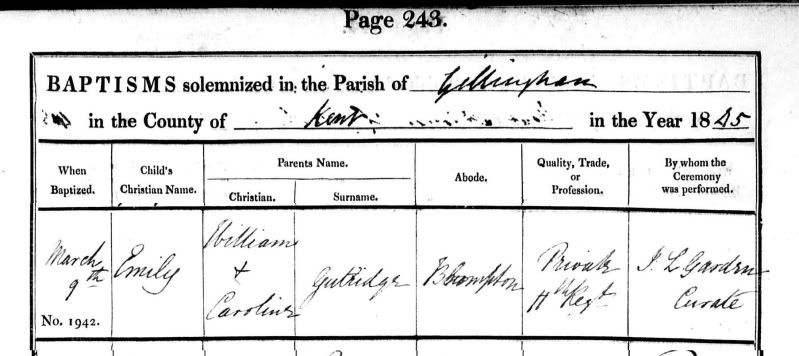 Page 243.
BAPTISMS solemnized in the Parish of Gillingham
in the County of Kent in the Year 1845
When Baptized.
Child's Christian Name.
Parents Name.
Christian.
Surname.
Abode.
Quality, Trade, or Profession.
By whom the Ceremony was performed.
March 9th
No. 1942.
Emily
William
+
Caroline
Gutridge
Brompton
Private
Regt
Curate